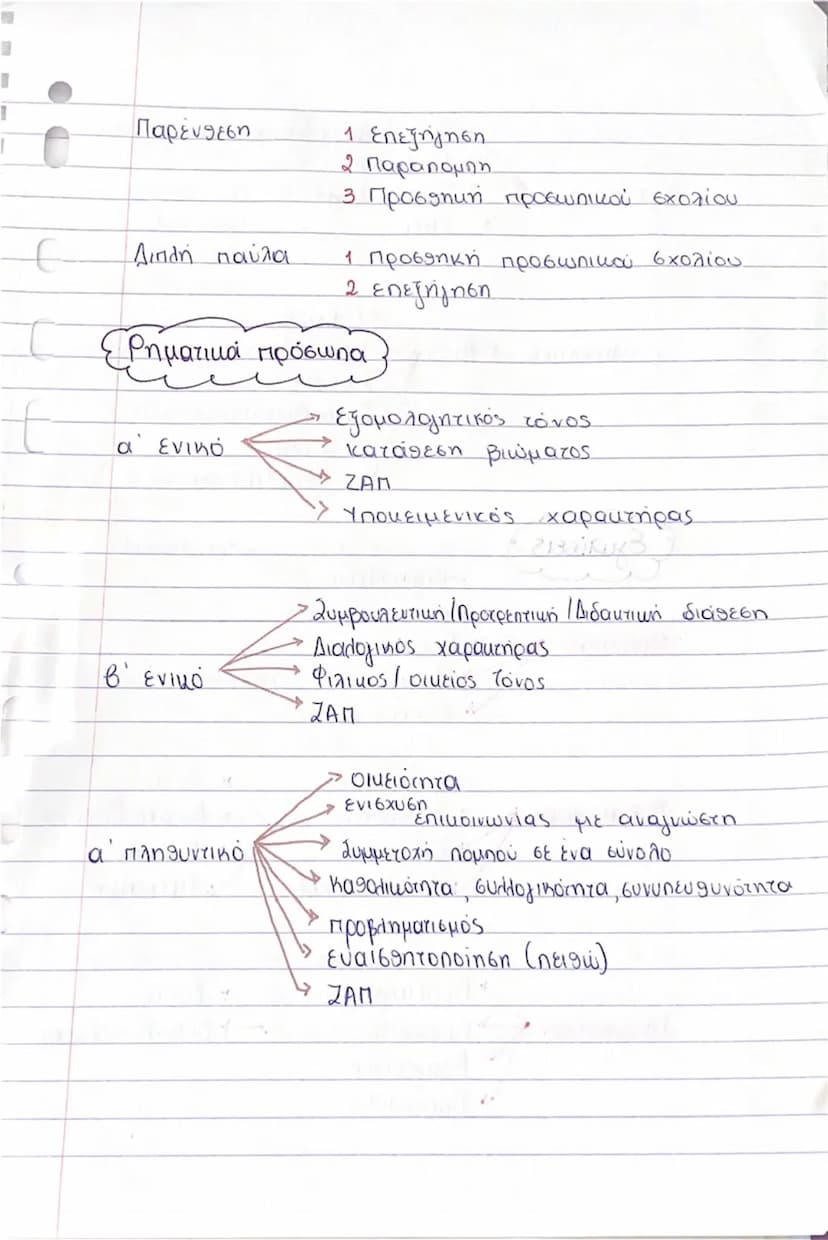 Παρένθεση 1 Επεξήγηση
2 Παραπομπη
3 Προσθηκή προσωπικού σχολίου
Διπλή παύλα 1 Προσθηκή προσωπικού σχολίου
2 επεξήγηση
Ρηματικά πρόσωπα
Εξομολογητικός τόνος
α' ενικό κατάθεση βιώματος
ΖΑΠ
Υποκειμενικός χαρακτήρας
Συμβουλευτική/Προτρεπτική/Διδακτική διάθεση
Διαλογικός χαρακτήρας
β' ενικό Φιλικος/οικείος τόνος
ΖΑΠ
οικειότητα
ενισχυση
επικοινωνίας με αναγνώστη
α' πληθυντικό Συμμετοχή πομπού σε ένα σύνολο
καθολικότητα, συλλογικότητα, συνυπευθυνότητα
προβληματισμός
ευαισθητοποίηση (πειθώ)
ΖΑΠ